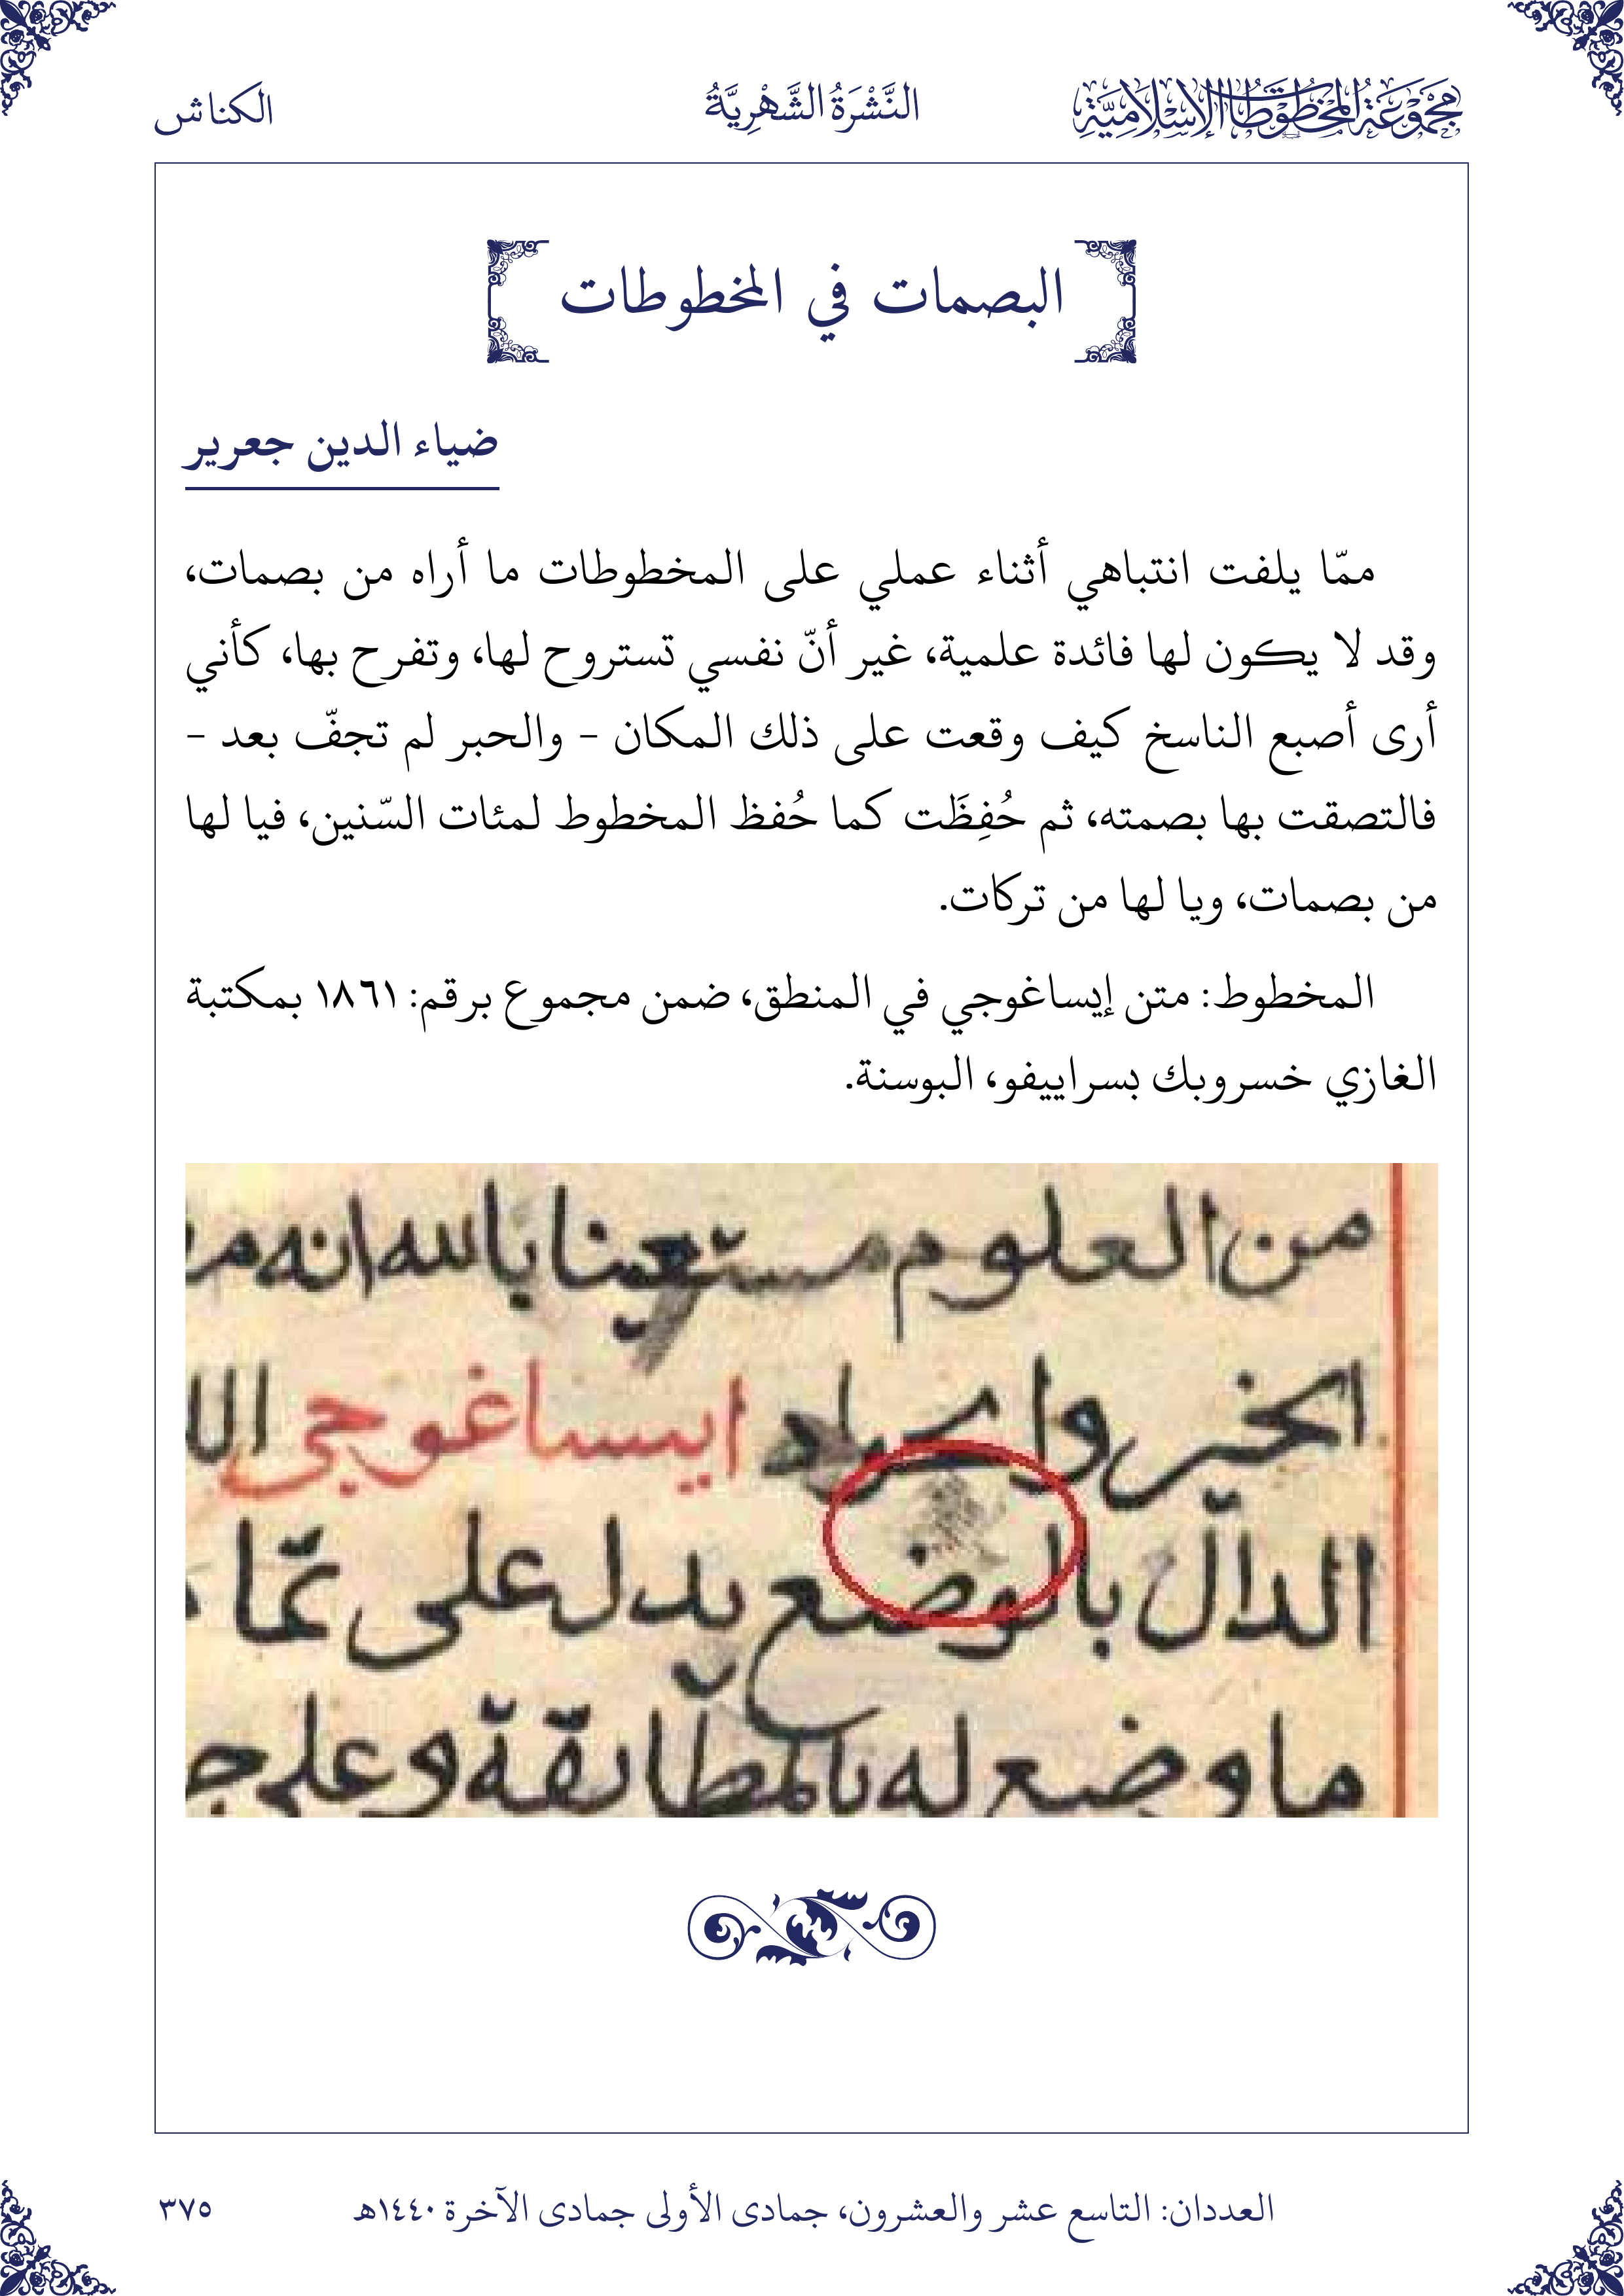 مَجْمُوعَةُ المَخْطُوطَاتِ الإِسْلَامِيَّةِ
النَّشْرَةُ الشَّهْرِيَّةُ
الكناش
البصمات في المخطوطات
ضياء الدين جعرير
ممّا يلفت انتباهي أثناء عملي على المخطوطات ما أراه من بصمات،
وقد لا يكون لها فائدة علمية، غير أنّ نفسي تستروح لها، وتفرح بها، كأني
أرى أصبع الناسخ كيف وقعت على ذلك المكان - والحبر لم تجفّ بعد -
فالتصقت بها بصمته، ثم حُفِظَت كما حُفظ المخطوط لمئات السّنين، فيا لها
من بصمات، ويا لها من تركات.
المخطوط: متن إيساغوجي في المنطق، ضمن مجموع برقم: ١٨٦١ بمكتبة
الغازي خسروبك بسراييفو، البوسنة.
من العلوم مستعينا بالله انه
الخير وا ايساغوجى
الدال بالوضع يدل على تما
ما وضع له بالمطابقة وعلى
العددان: التاسع عشر والعشرون، جمادى الأولى جمادى الآخرة ١٤٤٠هـ
٣٧٥